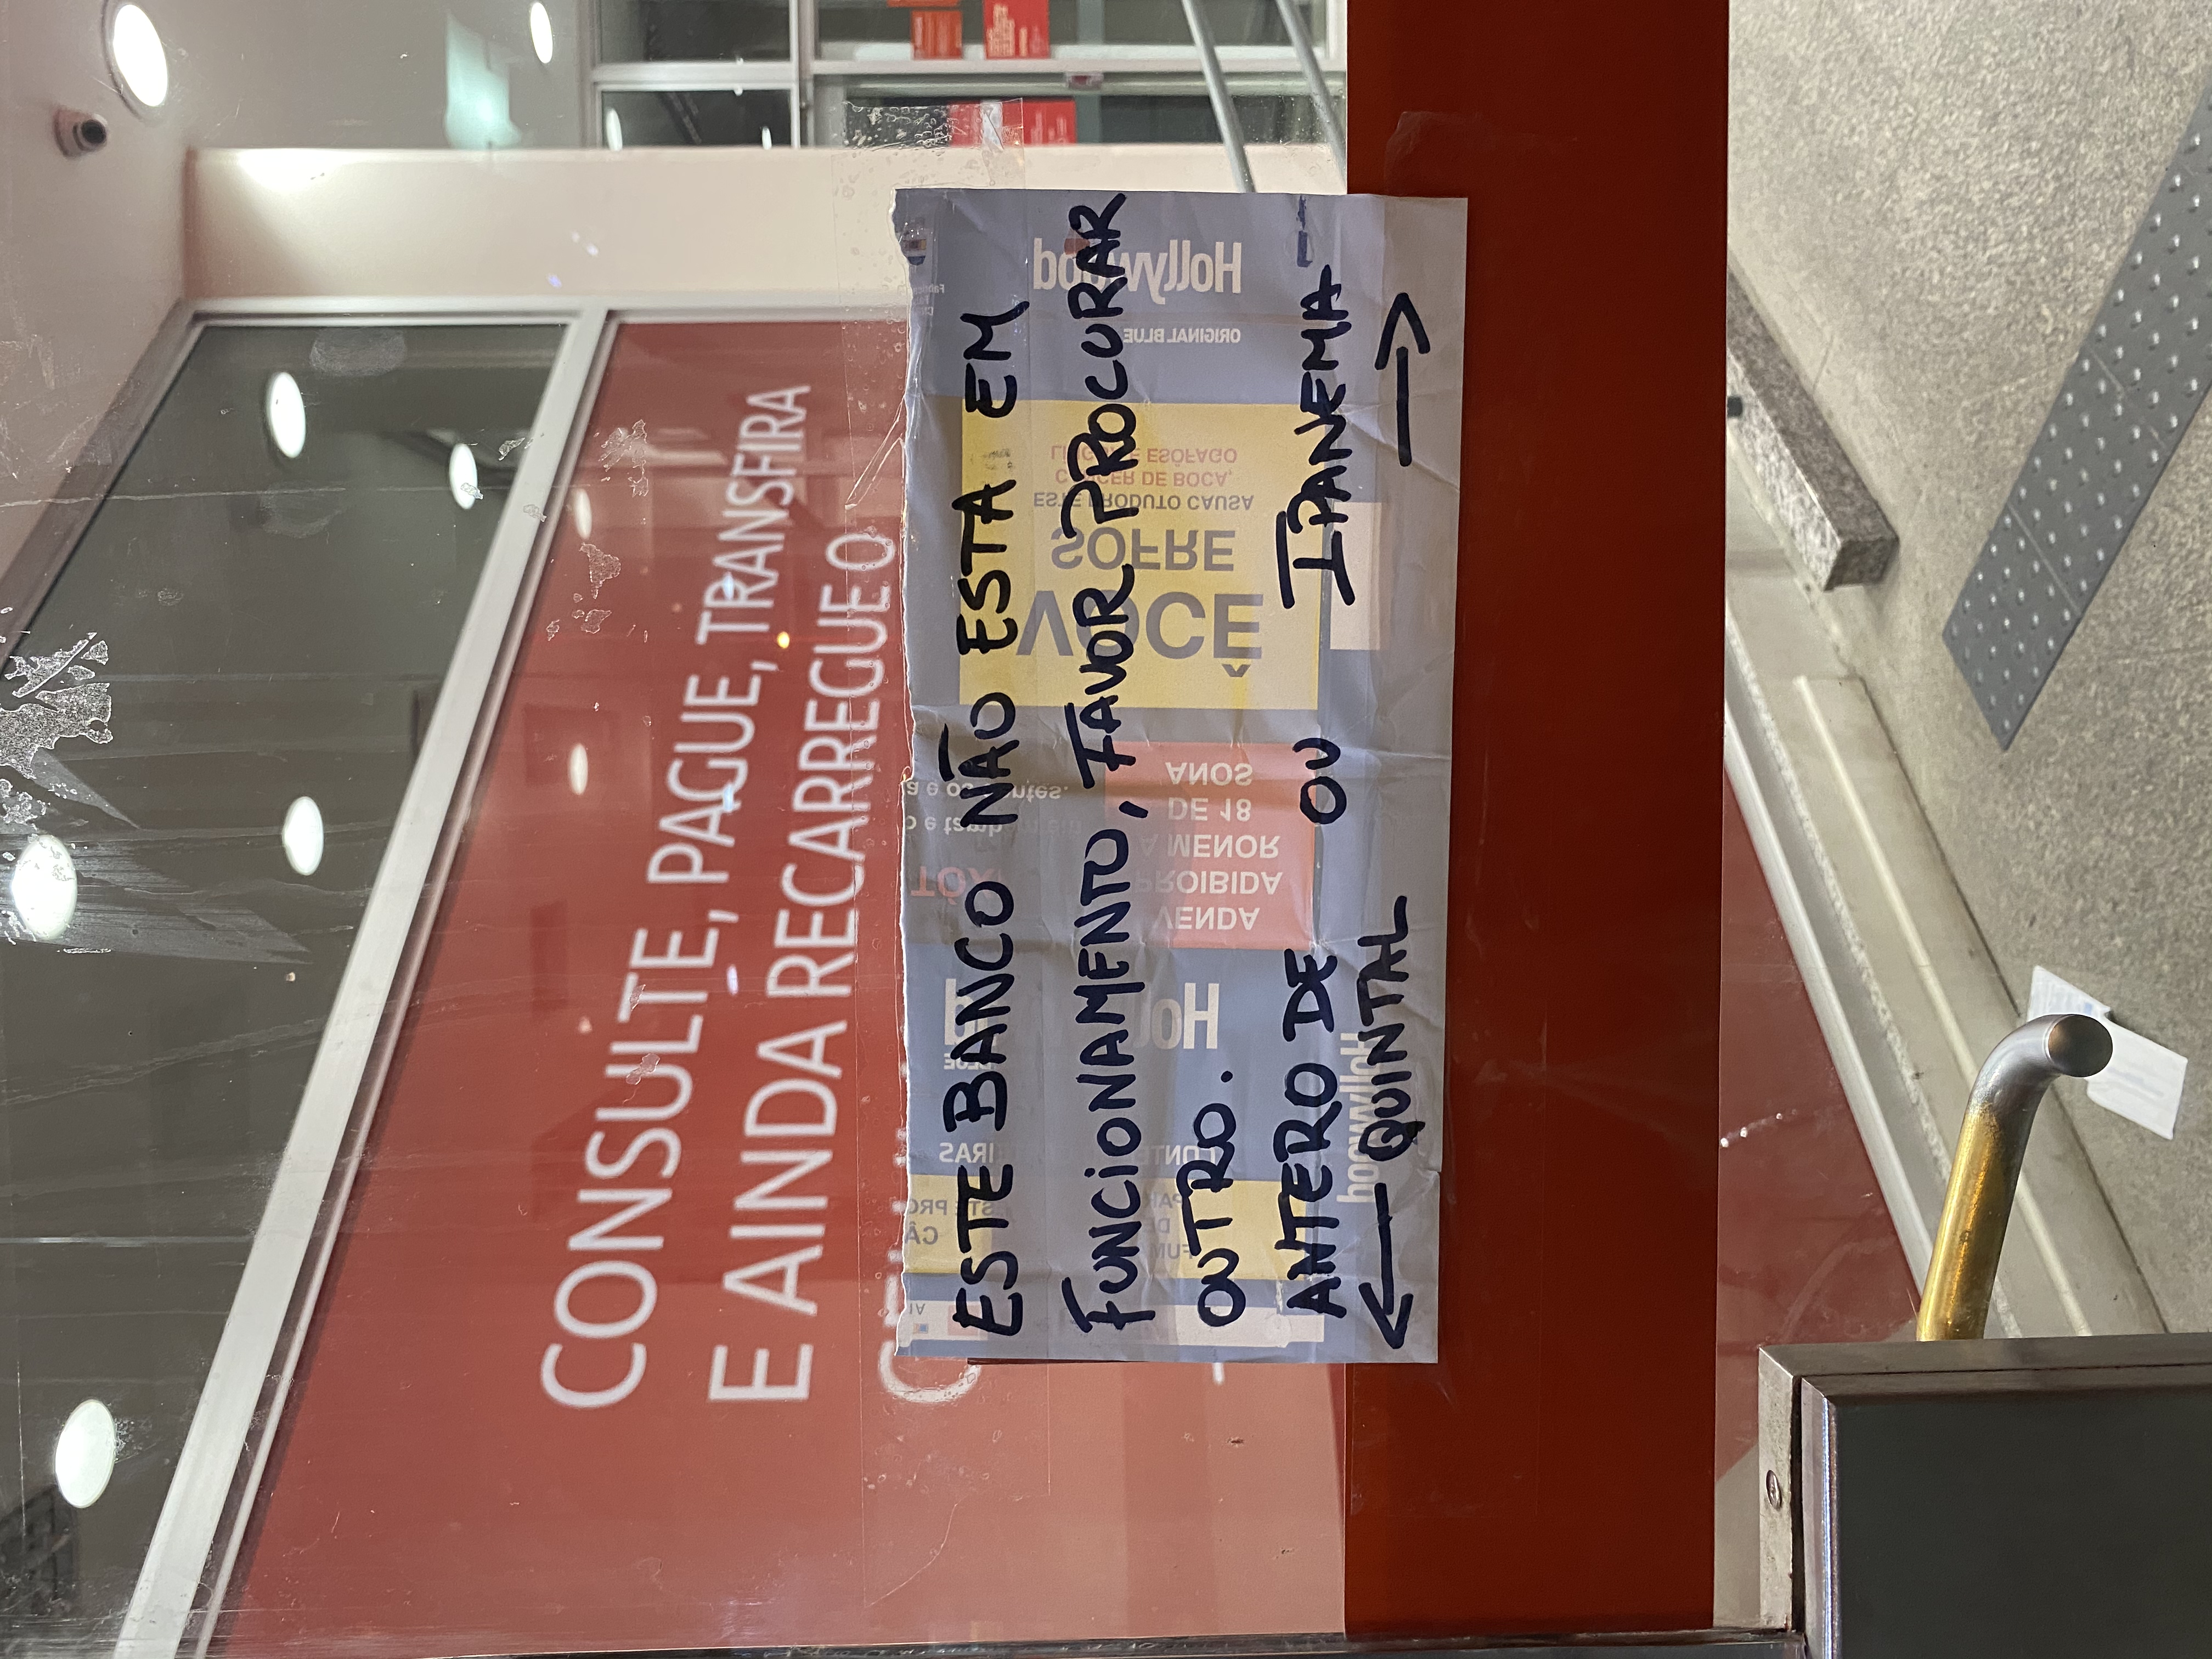 CONSULTE, PAGUE, TRANSFIRA
E AINDA RECARREGUE O
ESTE BANCO NÃO ESTA EM
FUNCIONAMENTO, FAVOR PROCURAR
OUTRO.
ANTERO DE OU IPANEMA
← QUINTAL →
Hollywood
ORIGINAL BLUE
VOCÊ
SOFRE
ESTE PRODUTO CAUSA
CÂNCER DE BOCA,
LÍNGUA E ESÔFAGO
VENDA
PROIBIDA
A MENOR
DE 18
ANOS
Hollywood